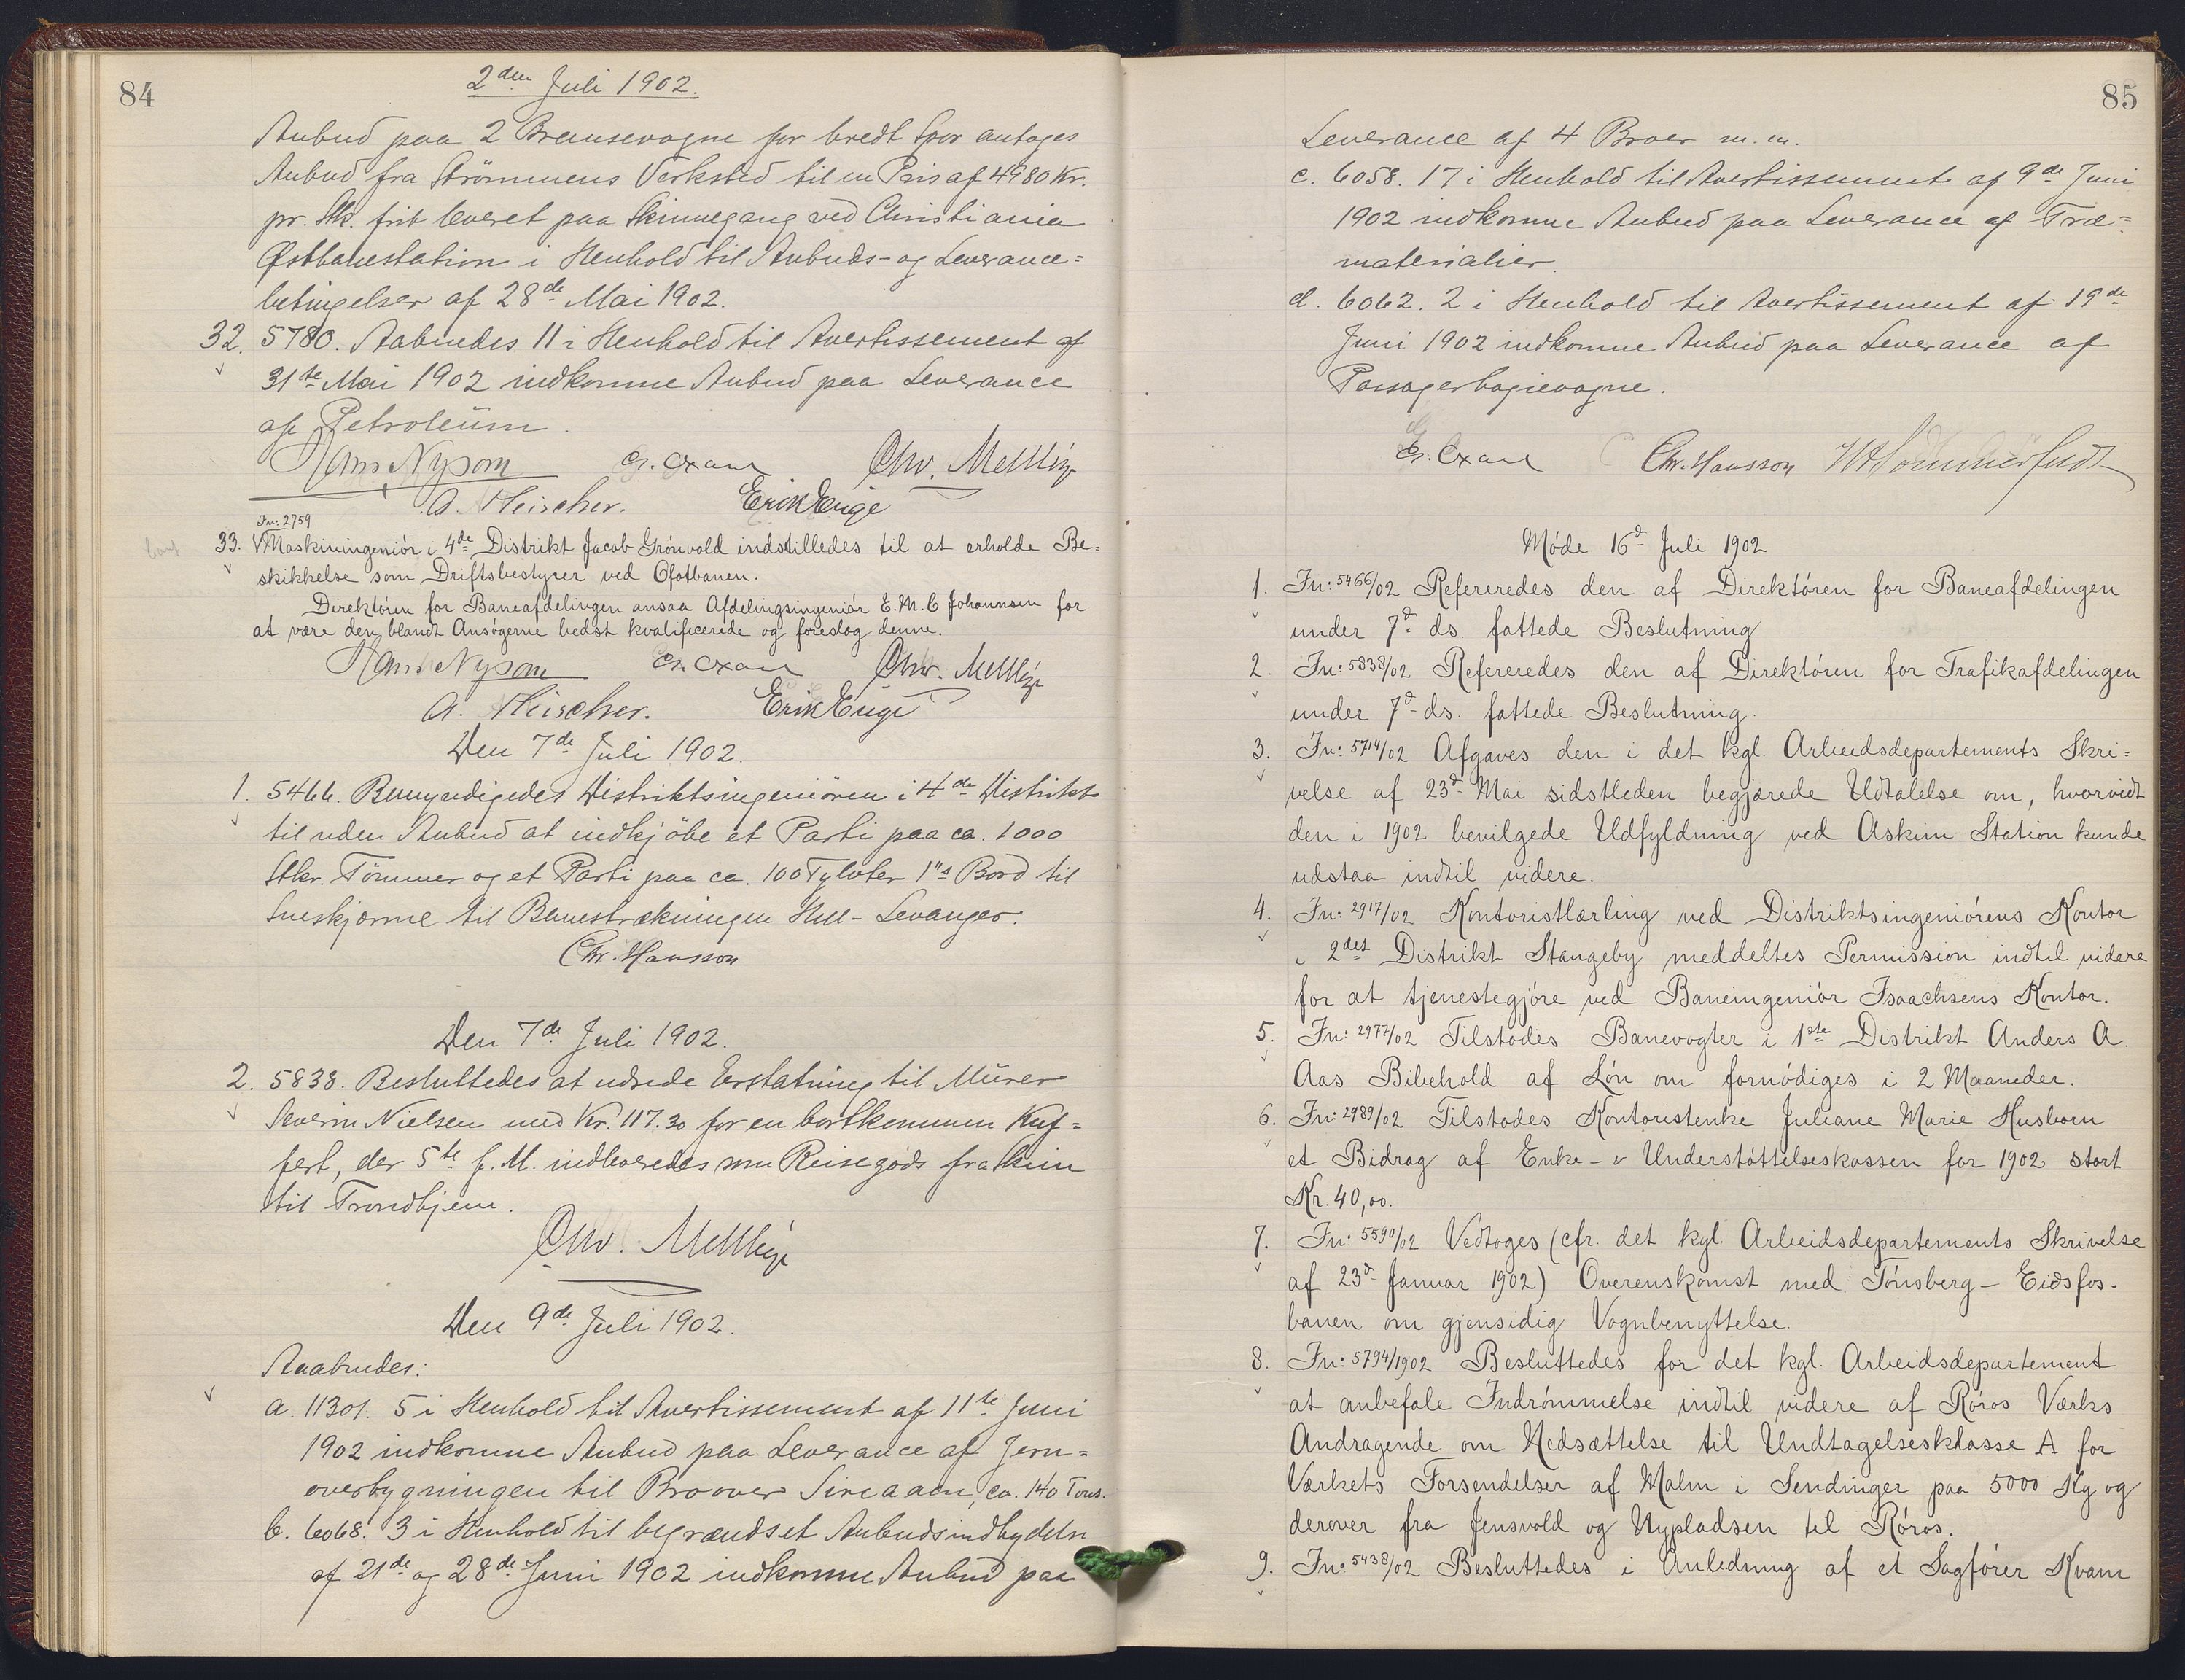 84
2den Juli 1902.
Anbud paa 2 Bremsevogne for bredt Spor antages
Anbud fra Strömmens Verksted til en Pris af 4980 Kr.
pr. Stk. frit leveret paa Skinnegang ved Christiania
Østbanestation i Henhold til Anbuds- og Leverance=
betingelser af 28de Mai 1902.
32. 5780. Aabnedes 11 i Henhold til Avertissement af
31te Mai 1902 indkomne Anbud paa Leverance
af Petroleum.
Hans Nysom
A. Fleischer. Erik Enge
Jn: 2759
33. Maskiningeniör i 4de Distrikt Jacob Grönvold indstilledes til at erholde Be=
skikkelse som Driftsbestyrer ved Ofotbanen.
Direktören for Baneafdelingen ansaa Afdelingsingeniör E. M. C Johannsen for
at være den blandt Ansögerne bedst kvalificerede og foreslog denne.
Hans Nysom
A. Fleischer. Erik Enge
Den 7de Juli 1902.
1. 5466. Bemyndigedes Distriktsingeniören i 4de Distrikt
til uden Anbud at indkjöbe et Parti paa ca. 1000
Stkr. Tömmer og et Parti paa ca. 100 Tylvter 1"s Bord til
Sneskjærme til Banestrækningen Hell - Levanger.
Chr. Hansson
Den 7de Juli 1902.
2. 5838. Besluttedes at udrede Erstatning til Murer
Severin Nielsen med Kr. 117.30 for en bortkommen Kuf=
fert, der 5te f. M. indleveredes som Reisegods fra
til Trondhjem.
Den 9de Juli 1902.
Aabnedes:
a. 11301. 5 i Henhold til Avertissement af 11te Juni
1902 indkomne Anbud paa Leverance af Jern=
overbygningen til Bro over Sireaaen, ca. 140 Tons.
b. 6068. 3 i Henhold til begrændset Anbudsindbydelse
af 21de og 28de Juni 1902 indkomne Anbud paa
85
Leverance af 4 Broer m. m.
c. 6058. 17 i Henhold til Avertissement af 9de Juni
1902 indkomne Anbud paa Leverance af Træ=
materialier.
d. 6062. 2 i Henhold til Avertissement af 19de
Juni 1902 indkomne Anbud paa Leverance af
Passagerbogievogne.
Chr. Hansson
Möde 16d Juli 1902
1. Jn: 5466/02 Refereredes den af Direktören for Baneafdelingen
under 7d ds. fattede Beslutning
2. Jn: 5838/02 Refereredes den af Direktören for Trafikafdelingen
under 7d ds. fattede Beslutning.
3. Jn: 5714/02 Afgaves den i det kgl. Arbeidsdepartements Skri=
velse af 23d Mai sidstleden begjærede Udtalelse om, hvorvidt
den i 1902 bevilgede Udfyldning ved Askim Station kunde
udstaa indtil videre.
4. Jn: 2917/02 Kontoristlærling ved Distriktsingeniörens Kontor
i 2det Distrikt Stangeby meddeltes Permission indtil videre
for at tjenestegjöre ved Baneingeniör Isaachsens Kontor.
5. Jn: 2977/02 Tilstodes Banevogter i 1ste Distrikt Anders A.
Aas Bibehold af Lön om fornödiges i 2 Maaneder.
6. Jn: 2989/02 Tilstodes Kontoristenke Juliane Marie Husborn
et Bidrag af Enke- & Understöttelseskassen for 1902 stort
Kr. 40,00.
7. Jn: 5590/02 Vedtoges (cfr. det kgl. Arbeidsdepartements Skrivelse
af 23d Januar 1902) Overenskomst med Tönsberg - Eidsfos-
banen om gjensidig Vognbenyttelse.
8. Jn: 5794/1902 Besluttedes for det kgl. Arbeidsdepartement
at anbefale Indrömmelse indtil videre af Röros Værks
Andragende om Nedsættelse til Undtagelsesklasse A for
Værkets Forsendelser af Malm i Sendinger paa 5000 Kg og
derover fra Jensvold og Nypladsen til Röros.
9. Jn: 5438/02 Besluttedes i Anledning af et Sagförer Kvam